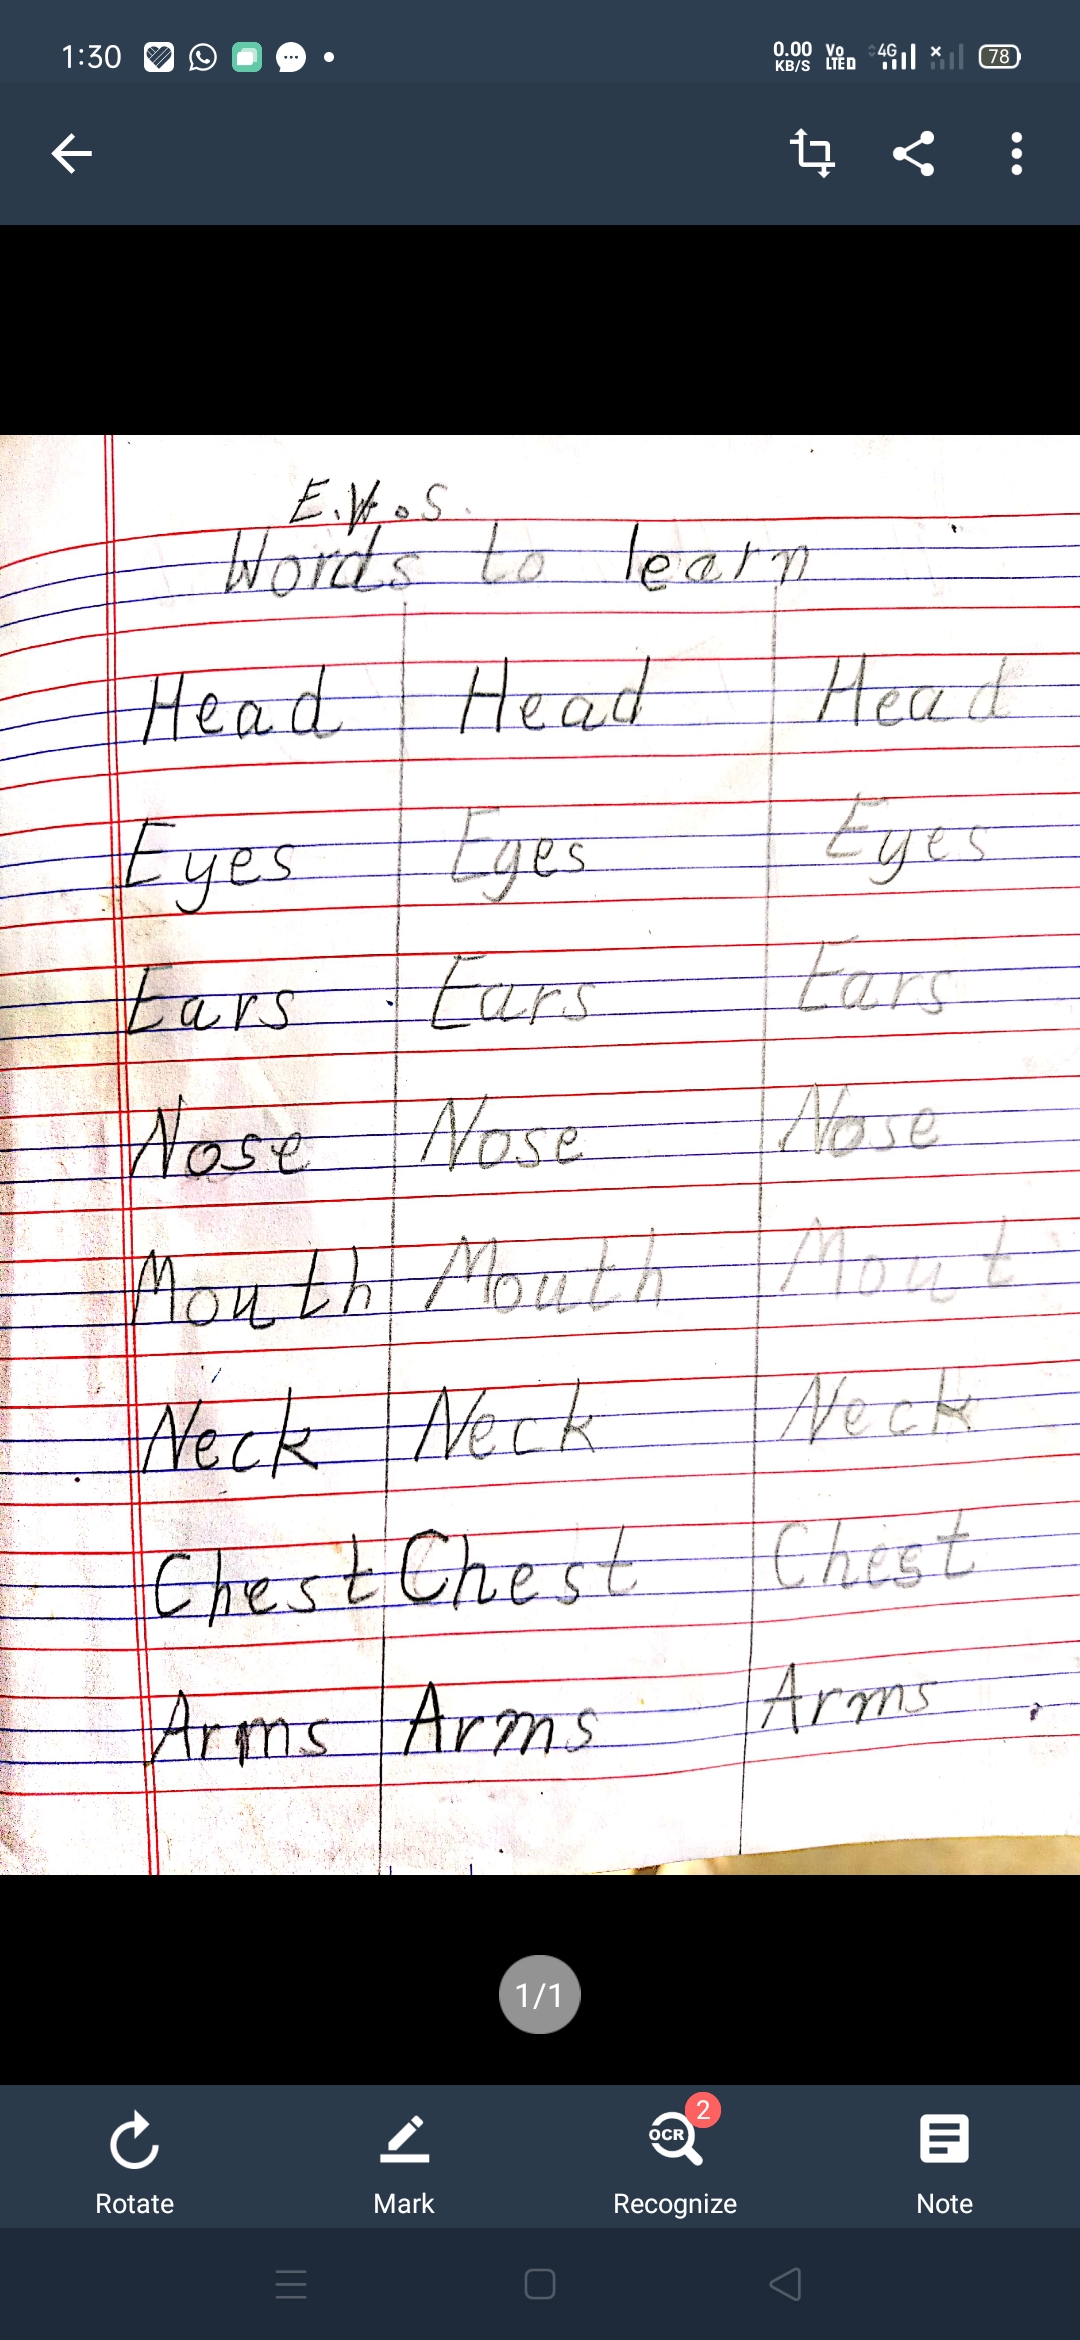 1:30 0.00 KB/S Vo LTE 4G 78
E.V.S.
Words to learn
Head Head Head
Eyes Eyes Eyes
Ears Ears Ears
Nose Nose Nose
Mouth Mouth Mout
Neck Neck Neck
Chest Chest Chest
Arms Arms Arms
1/1
2
OCR
Rotate Mark Recognize Note